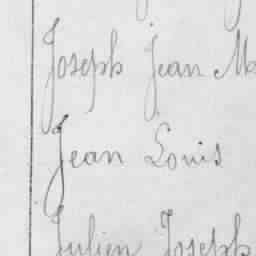 Joseph Jean M
Jean Louis
Julien Joseph